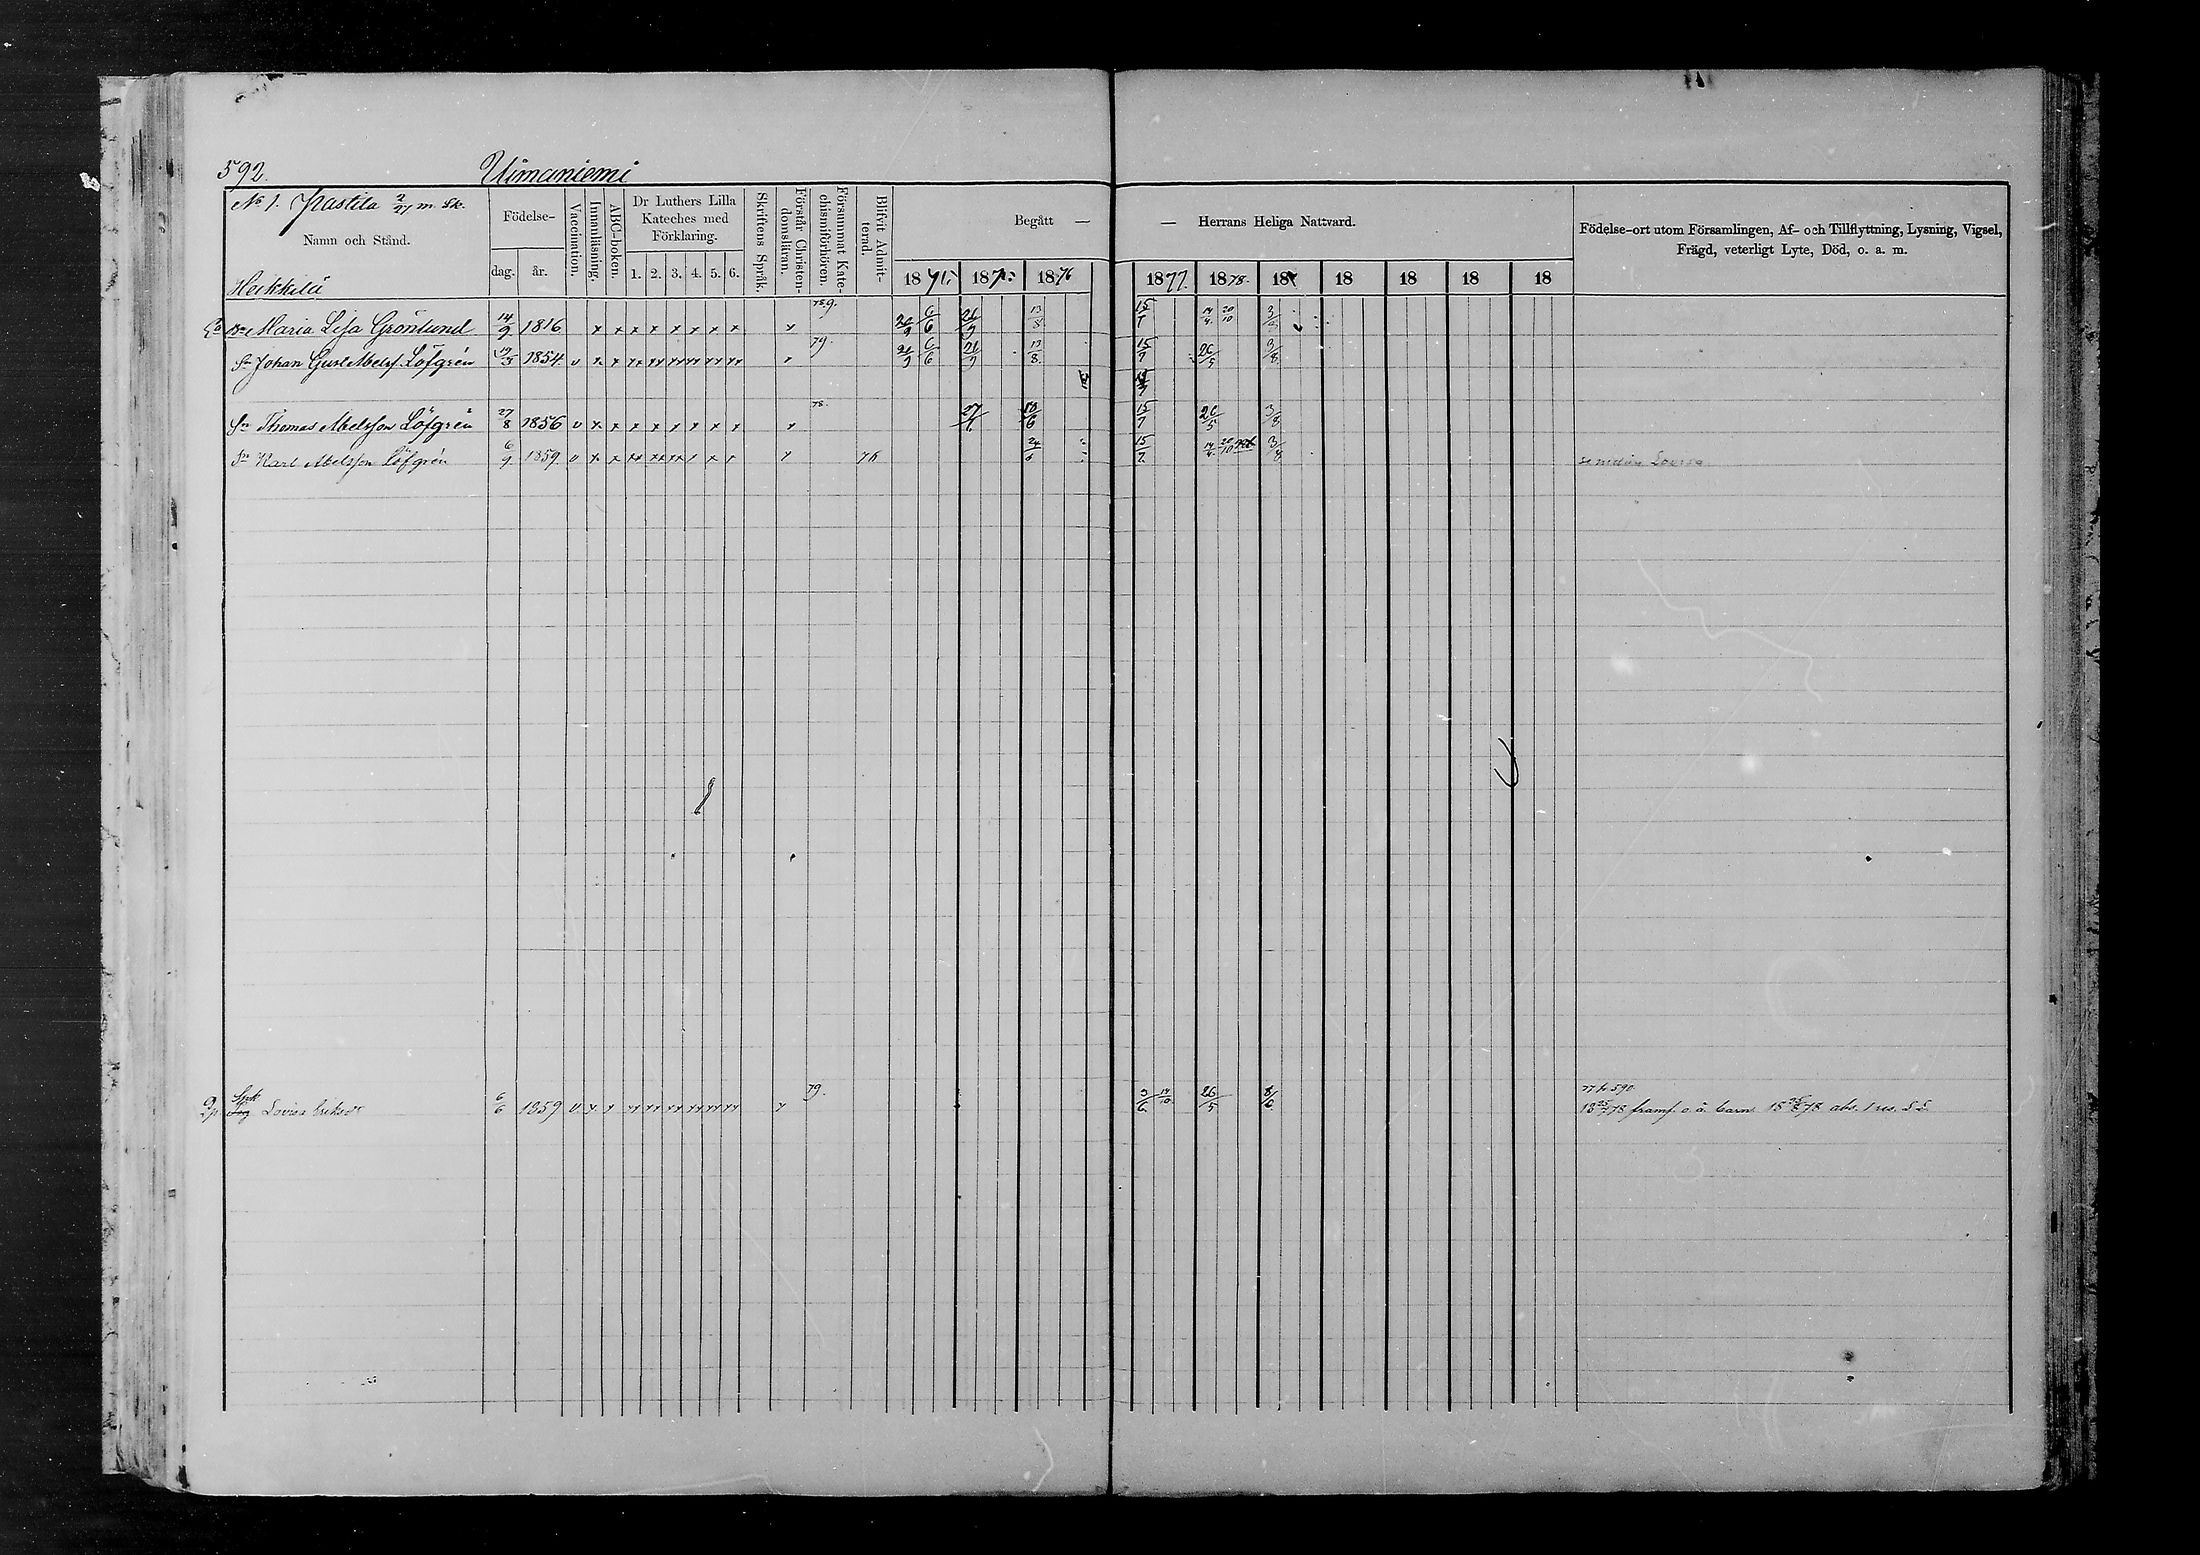 592. Uimaniemi
No 1. Pastila 2/27 m. Sk.
Namn och Stånd.
Heikkilä
Födelse-
dag. år.
Vaccination.
Innanläsning.
ABC-boken.
Dr Luthers Lilla
Kateches med
Förklaring.
1. 2. 3. 4. 5. 6.
Skriftens Språk.
Förstår Christen-
domsläran.
Försummat Kate-
chismiförhören.
Blifvit Admit-
terad.
Begått — — Herrans Heliga Nattvard.
18 187 1876 1877. 1878. 187 18 18 18 18
Födelse-ort utom Församlingen, Af- och Tillflyttning, Lysning, Vigsel,
Frägd, veterligt Lyte, Död, o. a. m.
Maria Lisa Grönlund 14/9 1816 x x x x x x x x x 6/6 13/8 15/7 14/4 20/10 3/8
Sn Johan Gust Abelss. Löfgrén 19/3 1854 v x x xx xx xx xx xx xx x 79. 6/6 13/8. 15/7 26/5 3/8
15/7
Sn Thomas Abelsson Löfgrén 27/8 1856 v x x x x x x x x x 78. 15/7 26/5 3/8
Sn Karl Abelsson Löfgrén 6/9 1859. v x x xx xx xx x x x x 24/6 15/7. 14/4. 20/10 3/8 Lovisa
Lovisa Eriksdr 6/6 1859 v x x xx xx xx xx xx xx x 79. 3/6. 14/10. 26/5 8/6
77 fr 590
18 78 framf. o. ä. barn 18 78 abs. S. E.